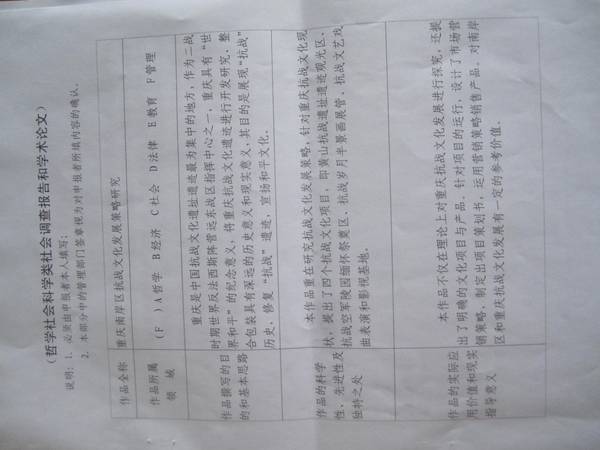 (哲学社会科学类社会调查报告和学术论文)
说明：1. 必须由申报者本人填写；
2. 本部分中的管理部门签章视为对申报者所填内容的确认。
作品全称
重庆南岸区抗战文化发展策略研究
作品所属
领 域
( F ) A 哲学 B 经济 C 社会 D 法律 E 教育 F 管理
作品撰写的目
的和基本思路
重庆是中国抗战文化遗址遗迹最为集中的地方，作为二战
时期世界反法西斯阵营远东战区指挥中心之一，重庆具有“世
界和平”的纪念意义，将重庆抗战文化遗迹进行开发研究、整
合包装具有深远的历史意义和现实意义，其目的是展现“抗战”
历史、修复“抗战”遗迹，宣扬和平文化。
作品的科学
性、先进性及
独特之处
本作品重在研究抗战文化发展策略，针对重庆抗战文化现
状，提出了四个抗战文化项目，即黄山抗战遗址遗迹观光区、
抗战空军陵园缅怀祭奠区、抗战岁月半景画展管、抗战文艺戏
曲表演和影视基地。
作品的实际应
用价值和现实
指导意义
本作品不仅在理论上对重庆抗战文化发展进行探究，还提
出了明确的文化项目与产品。针对项目的运行，设计了市场营
销策略，制定出项目策划书，运用营销策略销售产品。对南岸
区和重庆抗战文化发展有一定的参考价值。